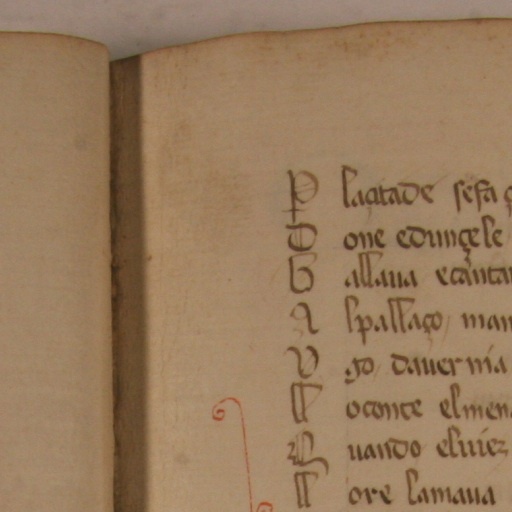 P la citade se fa
D one e dunçele
B allaua e cantau
A l pallaço man
V go dauernia
ll o conte el men
Quando el uiez
ll ore lamaua